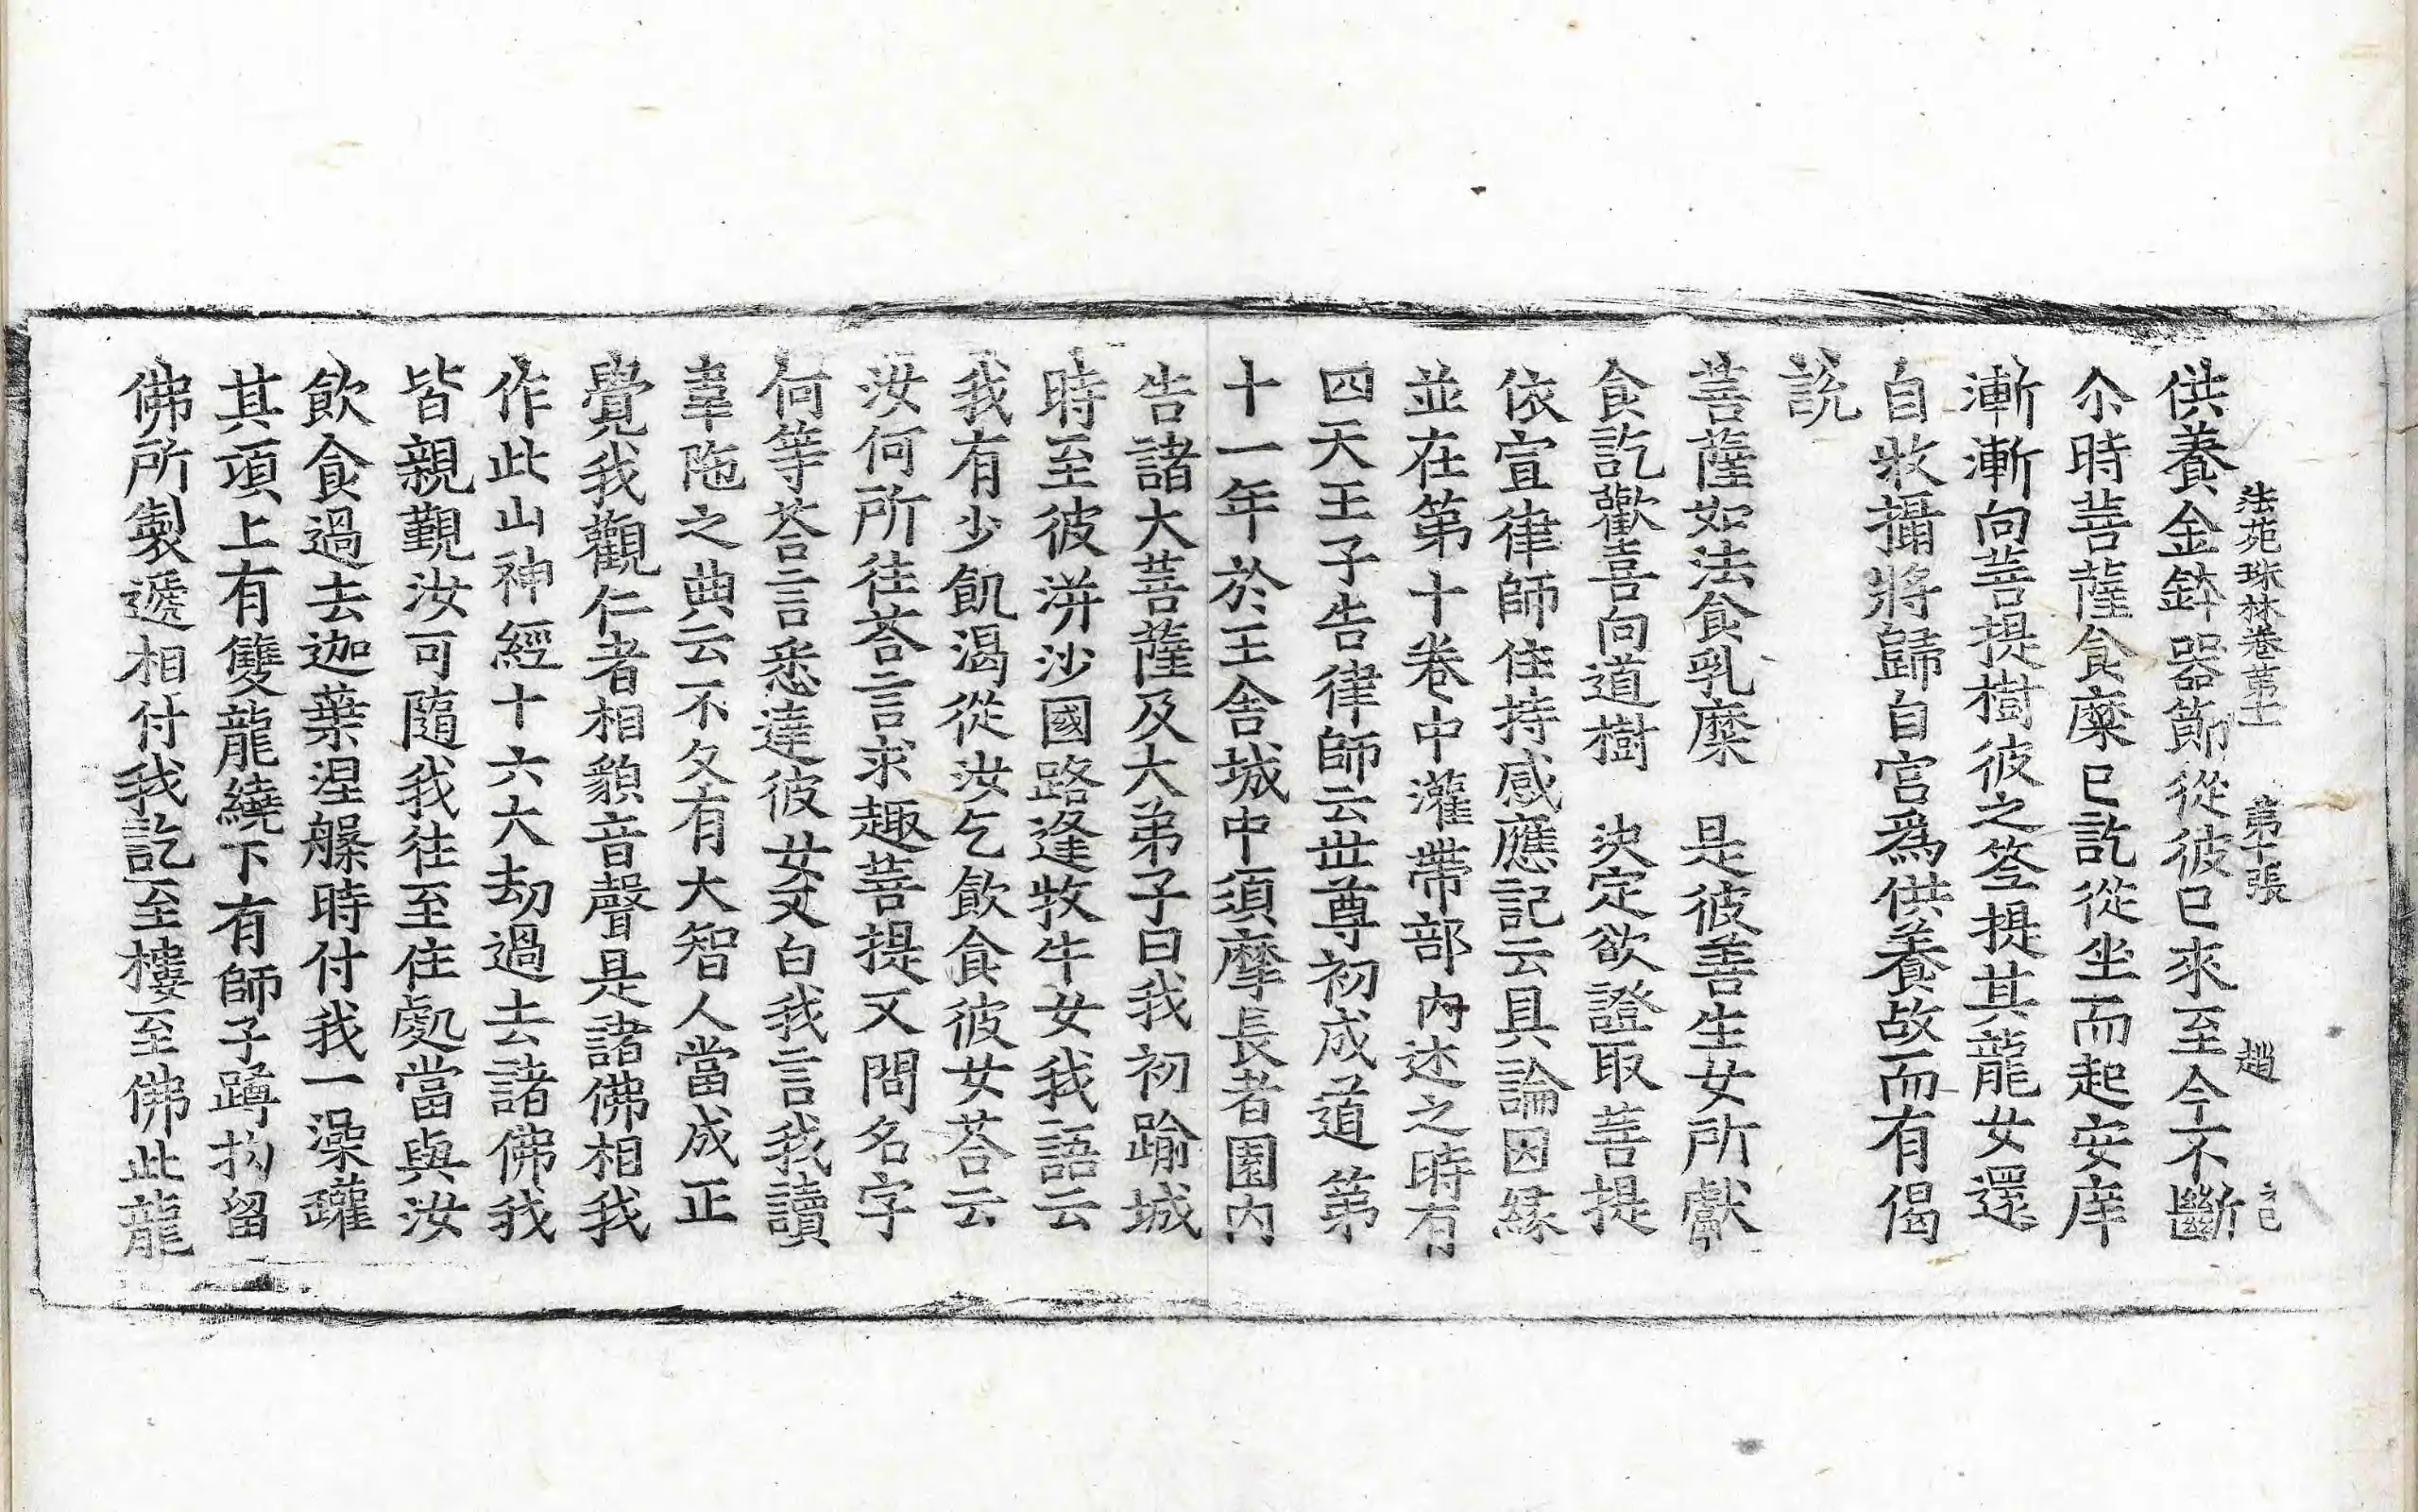 法苑珠林卷第十一 第十張 趙 
供養金鉢器節從彼已來至今不斷
尒時菩薩食糜已訖從坐而起安庠
漸漸向菩提樹彼之筌提其龍女還
自收攝將歸自宮爲供養故而有偈
說
菩薩如法食乳糜 是彼善生女所獻
食訖歡喜向道樹 決定欲證取菩提
依宣律師住持感應記云具論因緣
並在第十卷中灌帶部內述之時有
四天王子告律師云世尊初成道第
十一年於王舍城中須摩長者園內
告諸大菩薩及大弟子曰我初踰城
時至彼洴沙國路逢牧牛女我語云
我有少飢渴從汝乞飲食彼女荅云
汝何所往荅言求趣菩提又問名字
何等荅言悉達彼女又白我言我讀
韋陁之典云不久有大智人當成正
覺我觀仁者相貌音聲是諸佛相我
作此山神經十六大劫過去諸佛我
皆親覲汝可隨我往至住處當與汝
飲食過去迦葉涅槃時付我一澡罐
其項上有雙龍繞下有師子蹲抅留
佛所製遞相付我訖至樓至佛此龍